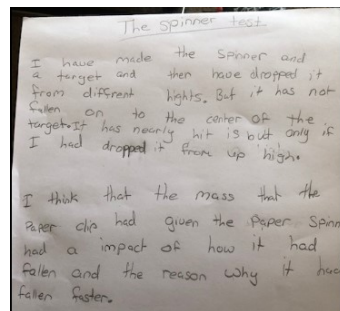 The spinner test
I have made the spinner and
a target and then have dropped it
from different hights. But it has not
fallen on to the center of the
target. It has nearly hit is but only if
I had dropped it from up high.
I think that the mass that the
Paper clip had given the Paper Spinn
had a impact of how it had
fallen and the reason why it had
fallen faster.